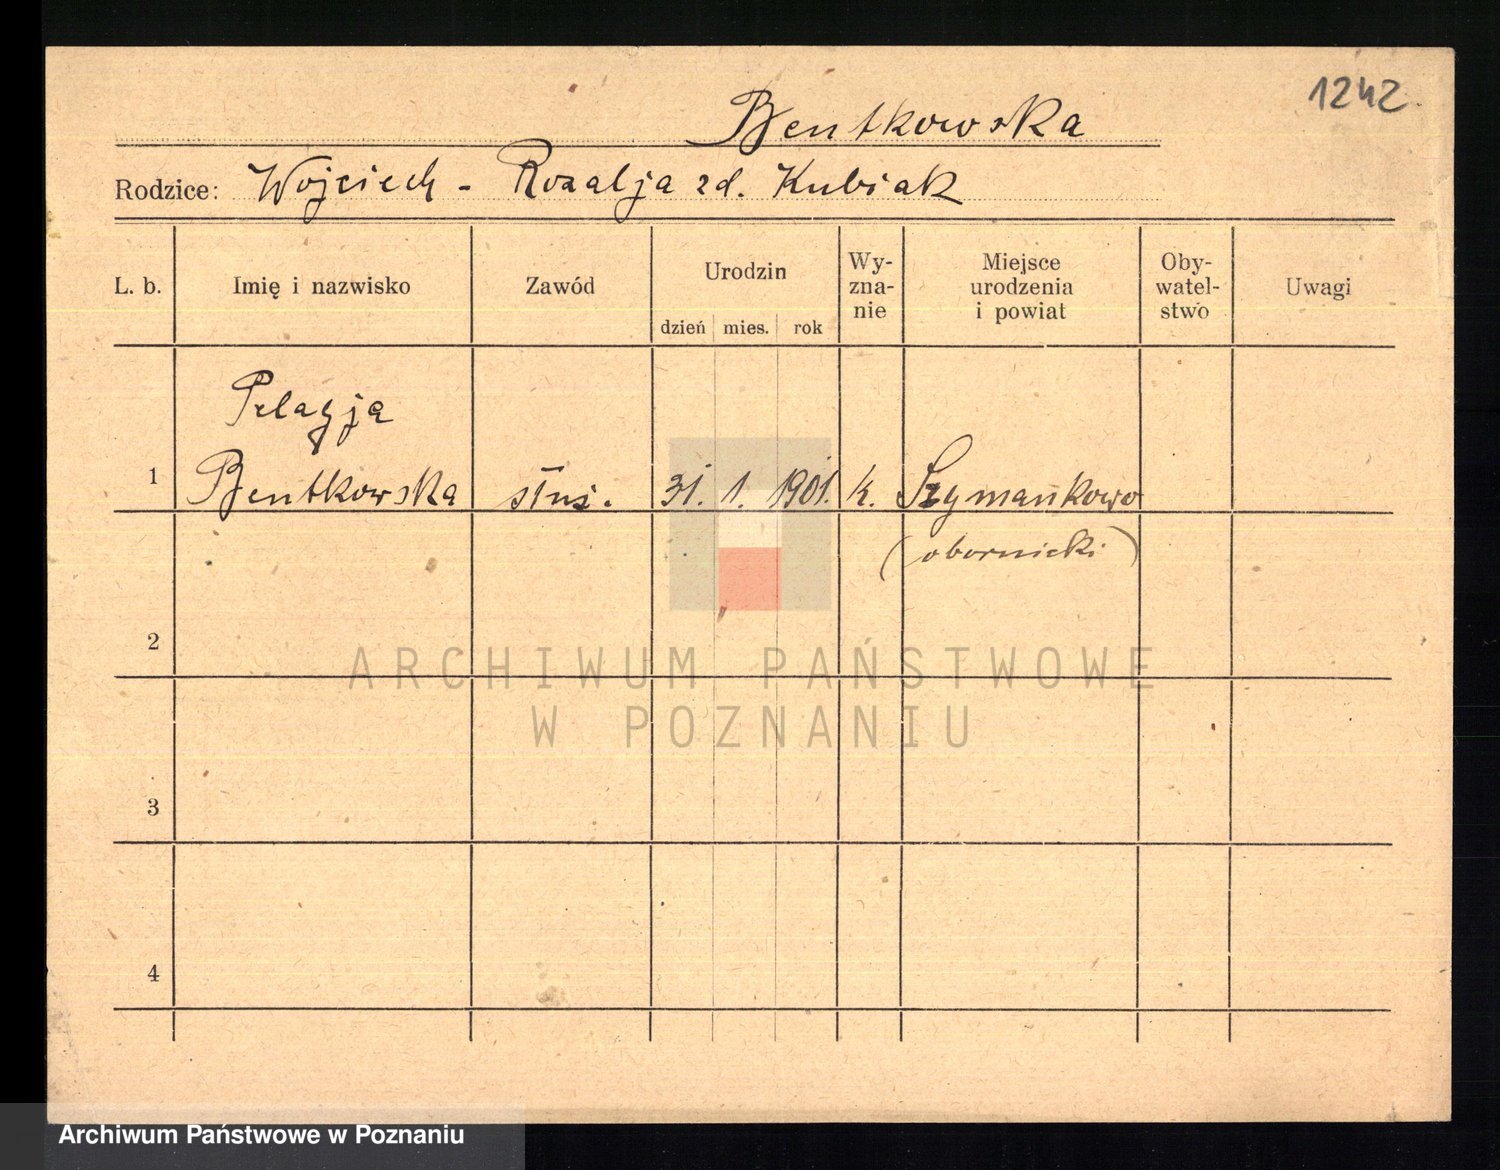 1242.
Bentkowska
Rodzice: Wojciech - Rozalja zd. Kubiak
L. b. Imię i nazwisko Zawód Urodzin Wy-zna-nie Miejsce urodzenia i powiat Oby-watel-stwo Uwagi
dzień mies. rok
Pelagja
1 Bentkowska służ. 31. 1. 1901. k. Szymankowo
(obornicki)
2
ARCHIWUM PAŃSTWOWE
W POZNANIU
3
4
Archiwum Państwowe w Poznaniu